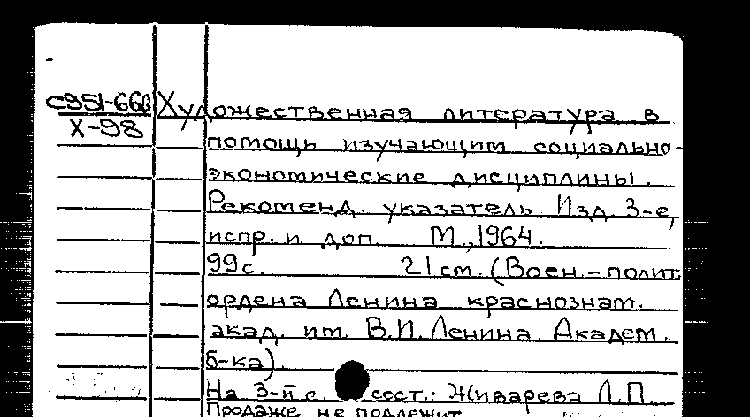 С951-660 Художественная литература в
Х-98 помощь изучающим социально-
экономические дисциплины.
Рекоменд. указатель. Изд. 3-е,
испр. и доп. М., 1964.
99с. 21 см. (Воен.-полит.
ордена Ленина краснознам.
акад. им. В.И. Ленина. Академ.
б-ка).
На 3-й с. сост.: Живарева Л.П.
Продаже не подлежит